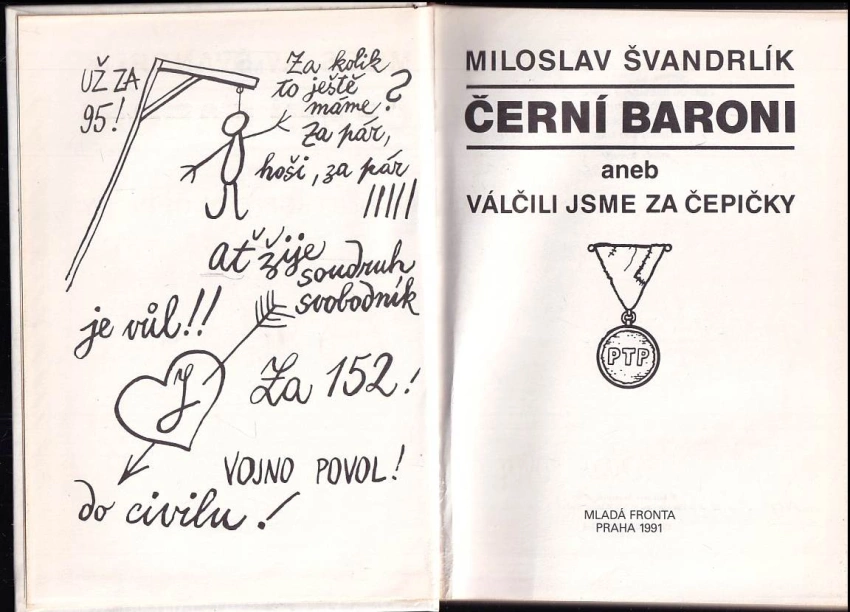 UŽ ZA
95!
Za kolik
to ještě
máme?
Za pár,
hoši, za pár
ať žije
soudruh
svobodník
je vůl!!
J
Za 152!
VOJNO POVOL!
do civilu!
MILOSLAV ŠVANDRLÍK
ČERNÍ BARONI
aneb
VÁLČILI JSME ZA ČEPIČKY
PTP
MLADÁ FRONTA
PRAHA 1991